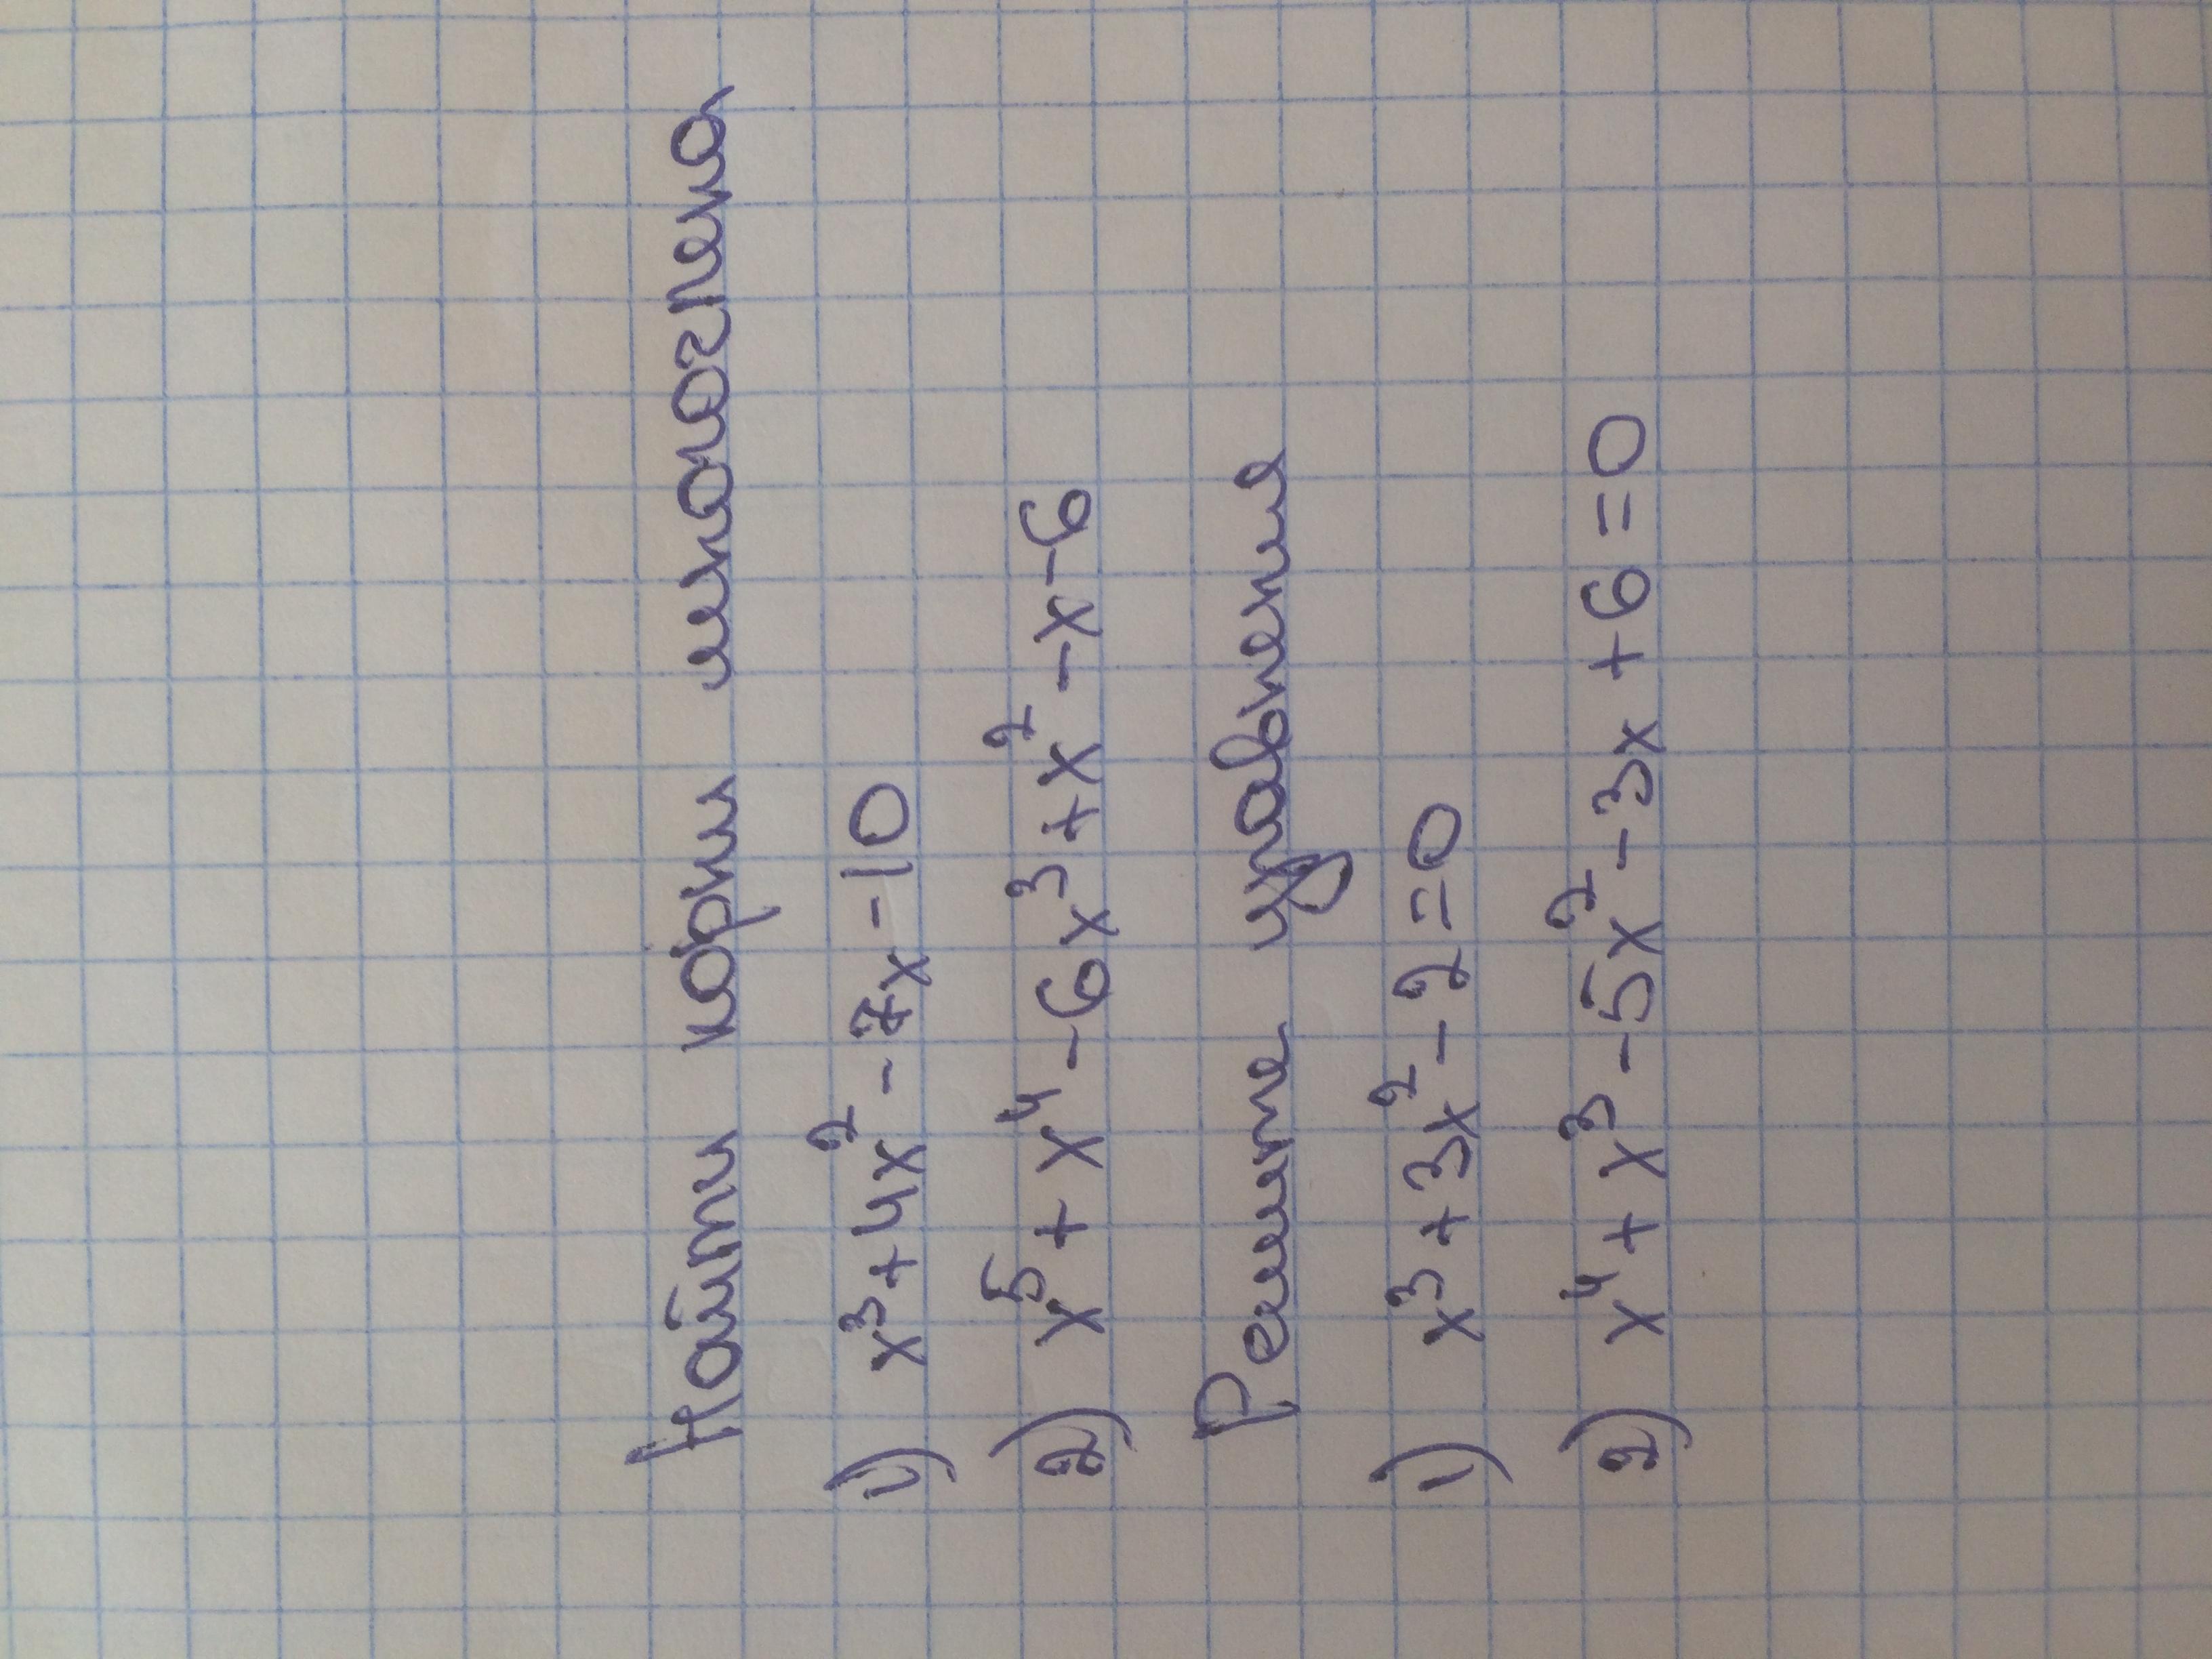 Найти корни многочлена
1) x³+4x²-7x-10
2) x⁵+x⁴-6x³+x²-x-6
Решите уравнение
1) x³+3x²-2=0
2) x⁴+x³-5x²-3x+6=0